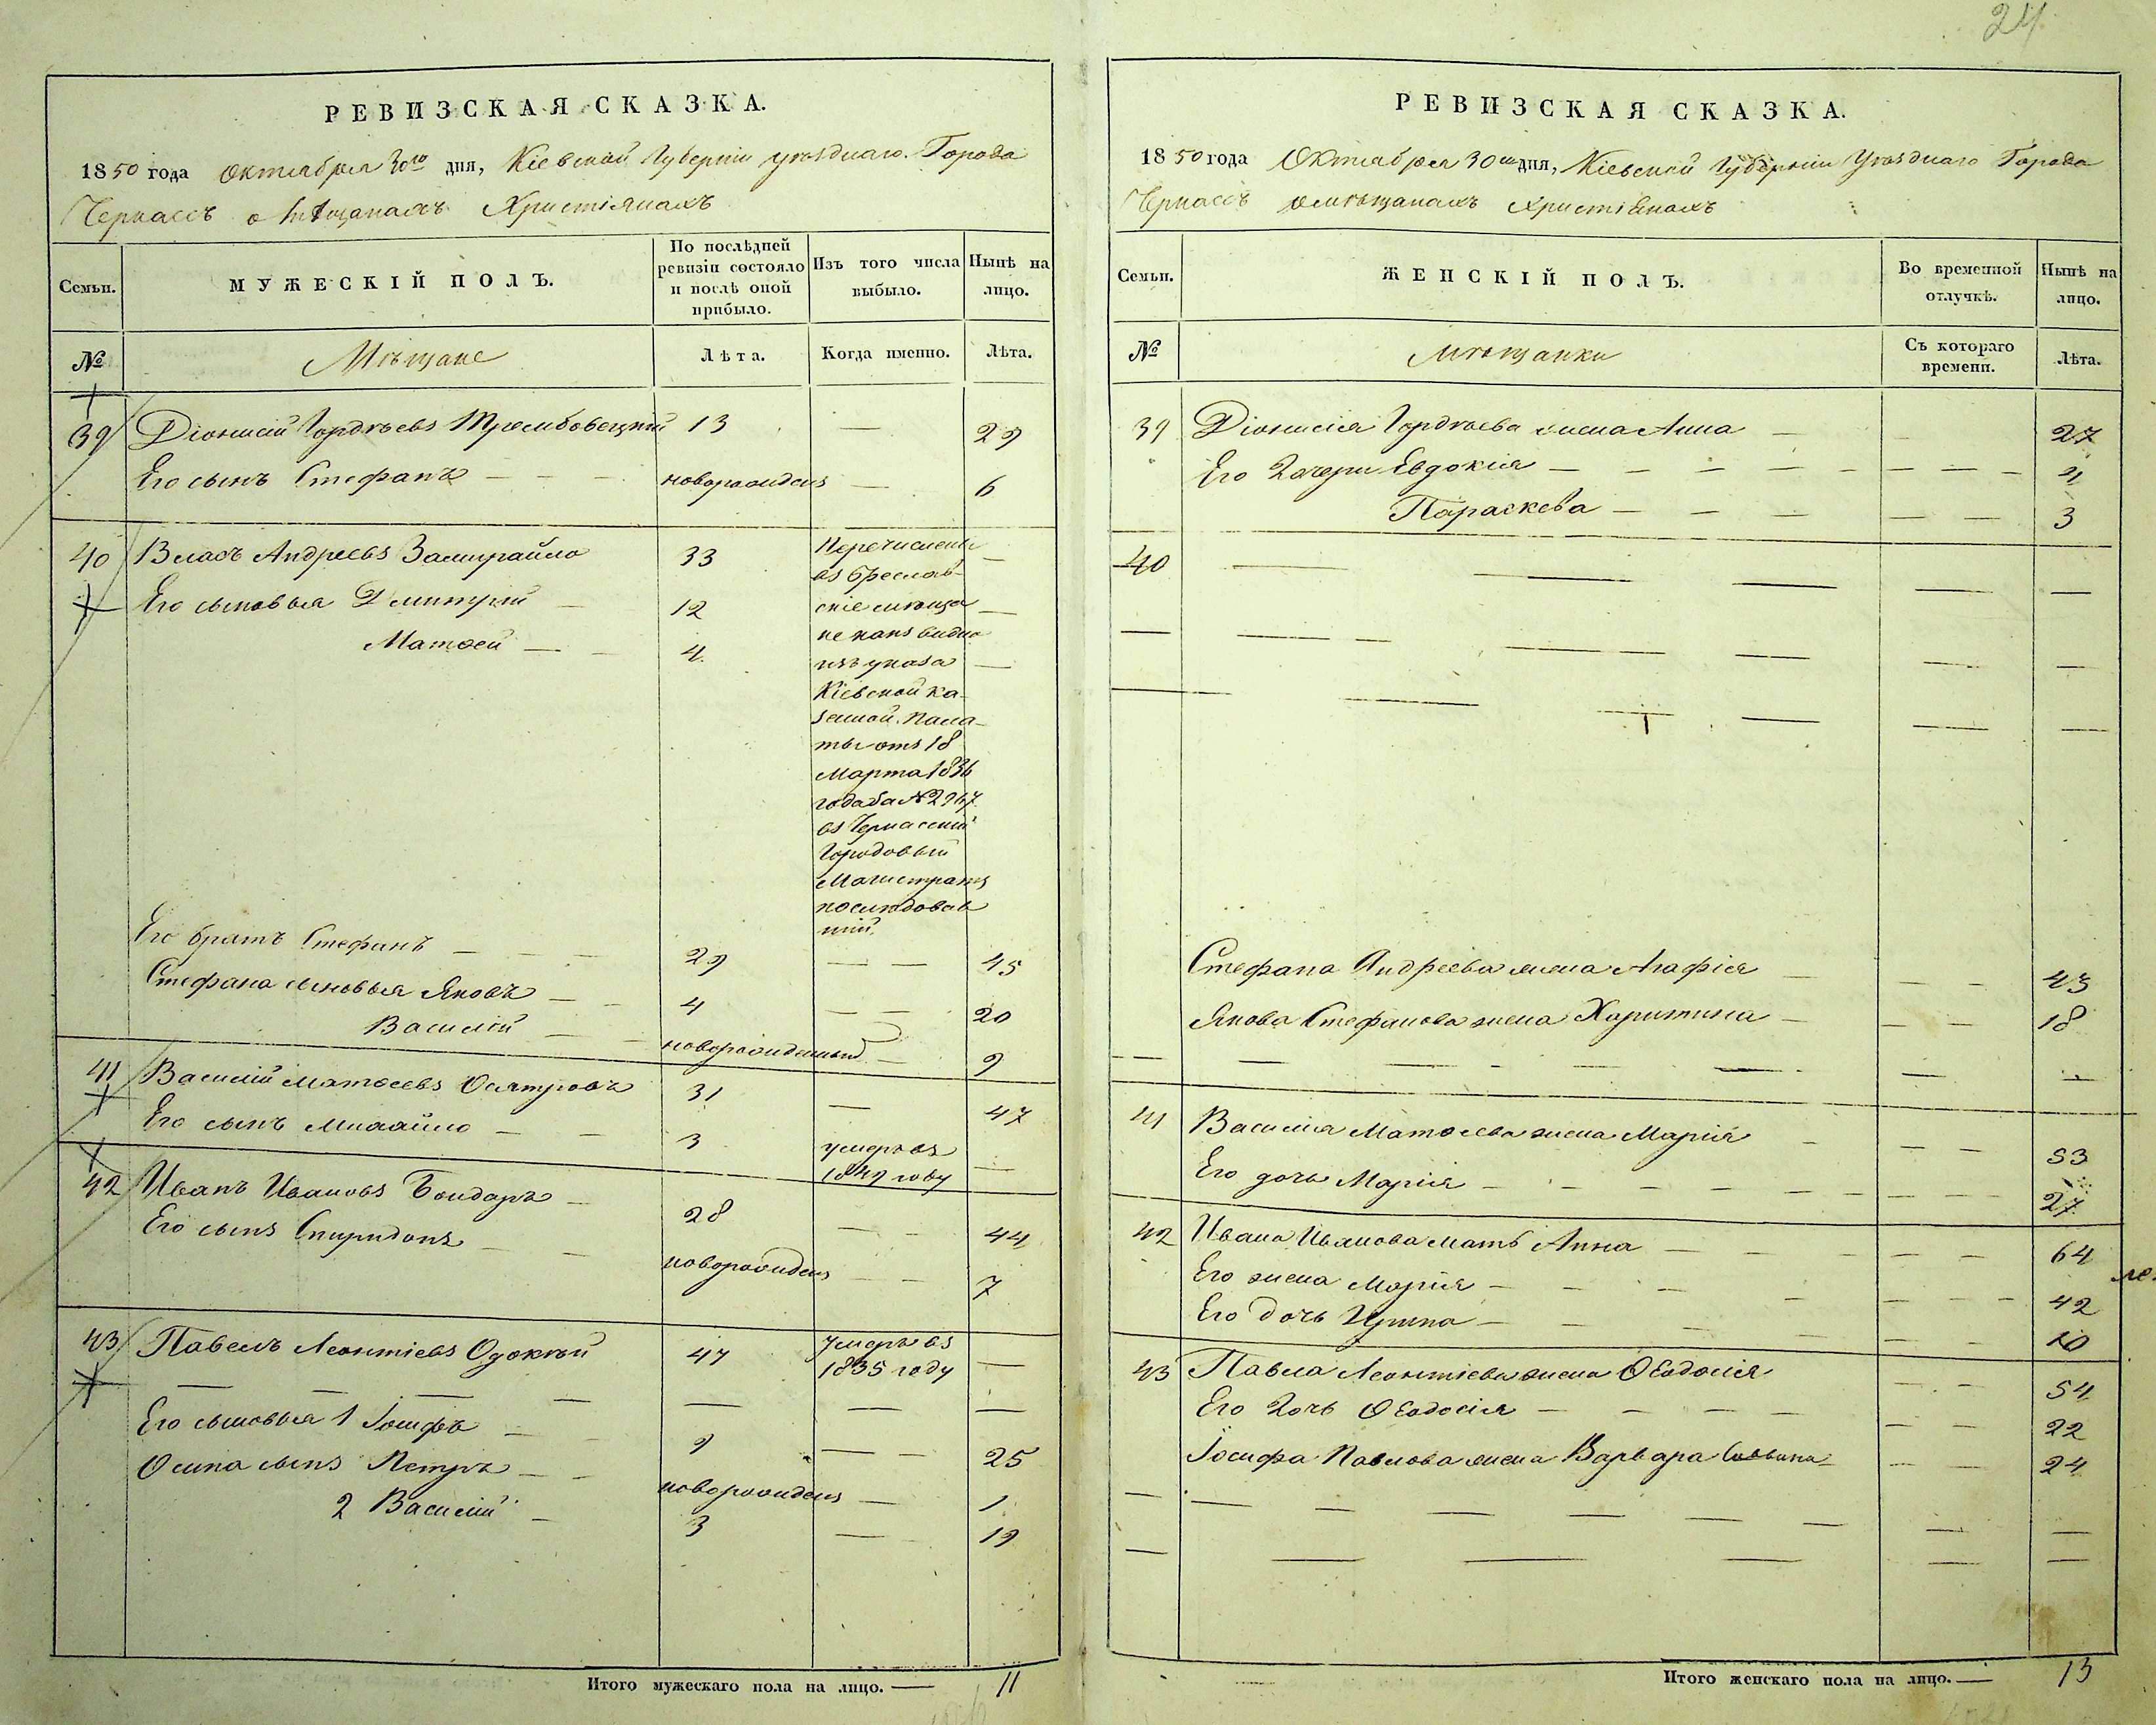 24
РЕВИЗСКАЯ СКАЗКА.
1850 года Октября 30го дня, Кіевской Губерніи уѣзднаго Города
Черкассъ о Мѣщанахъ Христіянахъ
Семьи.
МУЖЕСКІЙ ПОЛЪ.
По послѣдней ревизіи состояло и послѣ оной прибыло.
Изъ того числа выбыло.
Нынѣ на лицо.
№
Мѣщане
Лѣта.
Когда именно.
Лѣта.
39 Діонисій Гордѣевъ Трембовецкій 13 — 29
Его сынъ Стефанъ — — — новорожденъ — 6
40 Власъ Андреевъ Замирайло 33 —
Его сыновья Дмитрій — 12 —
Матвей — — 4 —
Перечислены
въ Бреслав-
скіе мѣща
не какъ видно
изъ указа
Кіевской ка-
зенной Пала-
ты отъ 18
Марта 1836
года за № 2967
въ Черкасскій
Городовый
Магистратъ
послѣдовав
шій.
Его братъ Стефанъ — — — 29 — — 45
Стефана сыновья Яковъ — — 4 — — 20
Василій — — новорожденный — 9
41 Василій Матвеевъ Осятровъ 31 — 47
Его сынъ Михайло — — 3 умеръ въ
1849 году —
42 Иванъ Ивановъ Бондарь — 28 — — 44
Его сынъ Спиридонъ — — новорожденъ — — 7
43 Павелъ Леонтіевъ Одокій 47 умеръ въ
1835 году —
— — — — — — —
Его сыновья 1 Іосифъ — — 9 — — 25
Осипа сынъ Петръ — — новорожденъ — 1
2 Василій — 3 — 19
Итого мужескаго пола на лицо. — 11
РЕВИЗСКАЯ СКАЗКА.
1850 года Октября 30го дня, Кіевской Губерніи Уѣзднаго Города
Черкассъ о мѣщанахъ Христіянахъ
Семьи.
ЖЕНСКІЙ ПОЛЪ.
Во временной отлучкѣ.
Нынѣ на лицо.
№
Мѣщанки
Съ котораго времени.
Лѣта.
39 Діонисія Гордѣева жена Анна — — 27
Его дочери Евдокія — — — — — — — — 4
Параскева — — — — — 3
40 — — — — —
— — — — — —
— — — — — —
Стефана Андреева жена Агафія — — — 43
Якова Стефанова жена Харитина — — — 18
— — — — — — — —
41 Василія Матвеева жена Марія — — — 53
Его дочь Марія — — — — — — — — — 27
42 Ивана Иванова мать Анна — — — — — 64
Его жена Марія — — — — — — — 42
Его дочь Ирина — — — — — — 10
43 Павла Леонтіева жена Ѳеодосія — — 54
Его дочь Ѳеодосія — — — — — — 22
Іосифа Павлова жена Варвара — — 24
— — — — — — — — —
— — — — — —
Итого женскаго пола на лицо. — 13